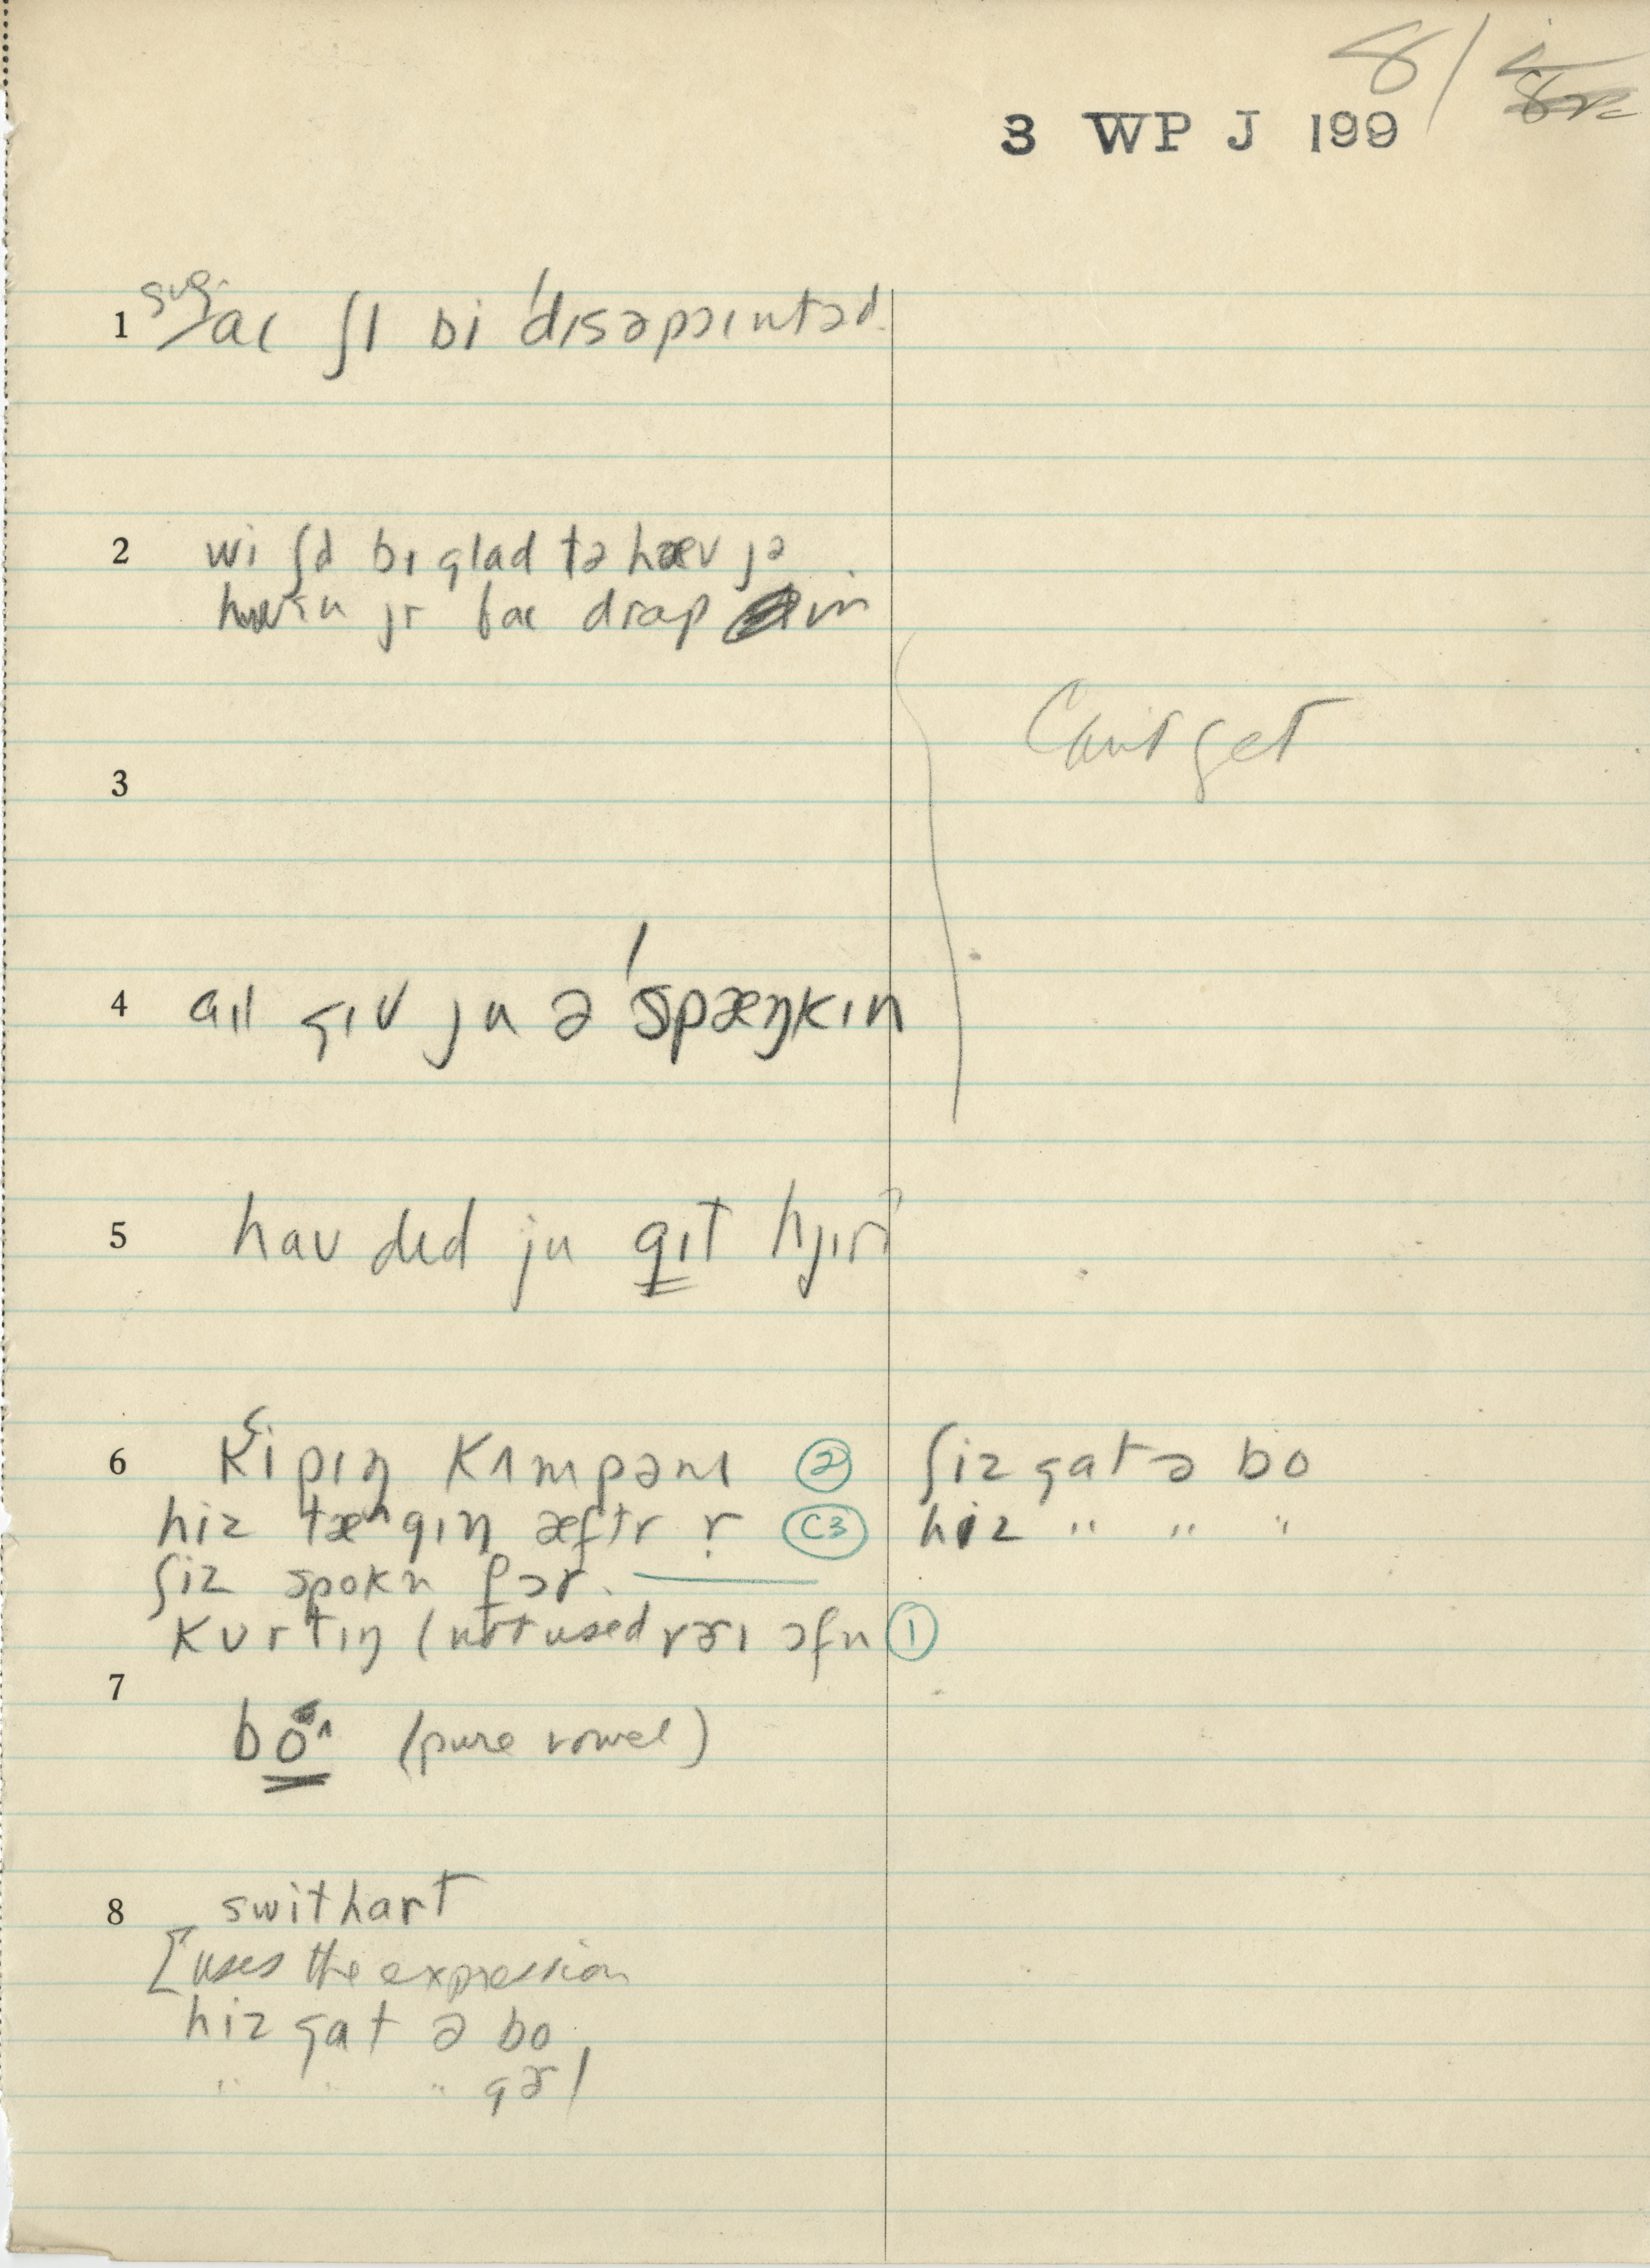 8/
3 WP J 199
1 sug. aɪ ʃl bi ˈdɪsəpɔɪntəd
2 wi ʃd bɪ glad tə hæv jə
jr drap in
Can't get
3
4 aɪl gɪv ju ə ˈspæŋkɪn
5 haʊ dɪd ju gɪt hjɪr?
6 kipɪŋ kʌmpənɪ ② ʃiz gat ə bo
hiz tæ^gɪŋ æftr r C3 hiz " " "
ʃiz spokn fɔr.
kʊrtɪŋ (not used vɛrɪ ɔfn ①
7
bo^ (pure vowel)
8 swithart
[uses the expression
hiz gat ə bo
" " " gɚl